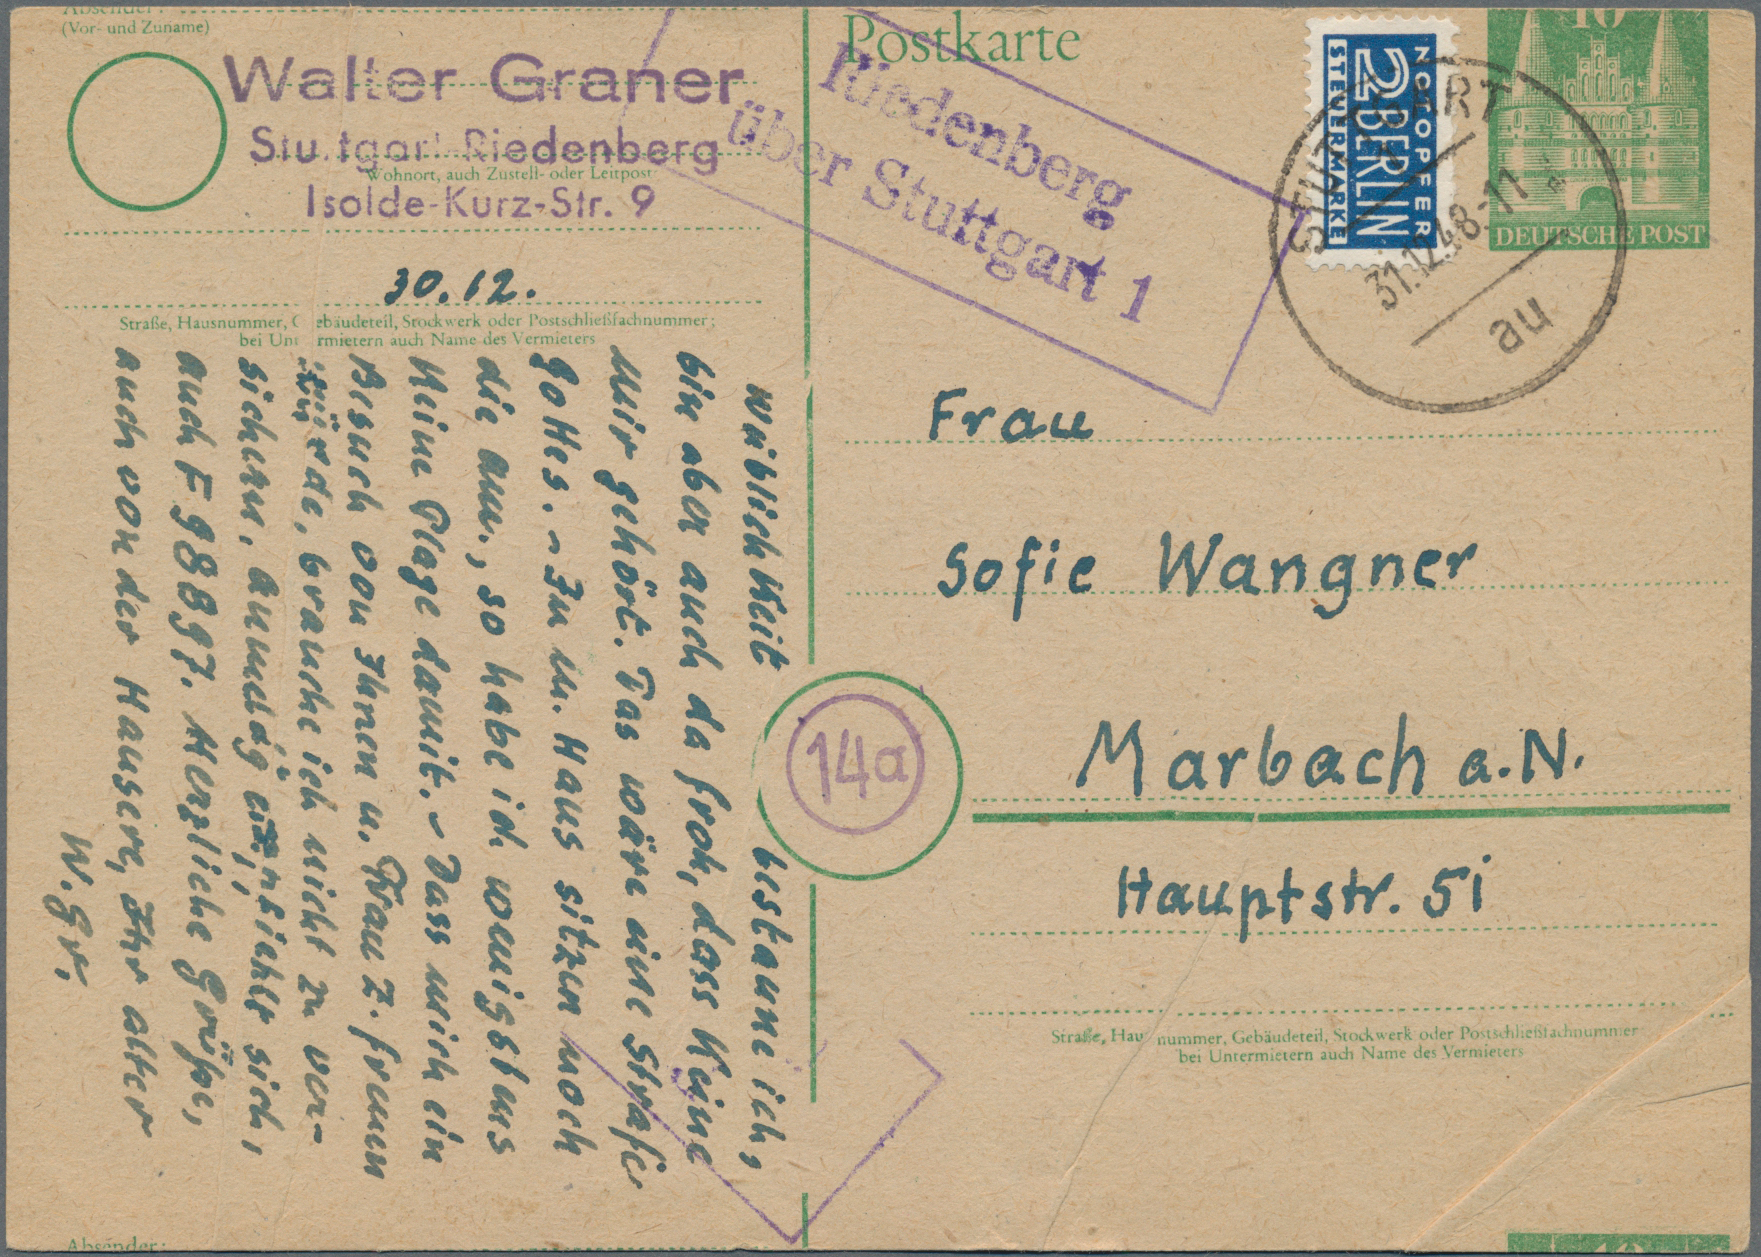 Absender:
(Vor- und Zuname)
Walter Graner
Stuttgart-Riedenberg
Wohnort, auch Zustell- oder Leitpost
Isolde-Kurz-Str. 9
30.12.
Straße, Hausnummer, Gebäudeteil, Stockwerk oder Postschließfachnummer;
bei Untermietern auch Name des Vermieters
Postkarte
Riedenberg
über Stuttgart 1
NOTOPFER
2 BERLIN
STEUERMARKE
10
DEUTSCHE POST
STUTTGART
31.12.48.-11
au
Frau
Sofie Wangner
Marbach a.N.
Hauptstr. 51
Straße, Hausnummer, Gebäudeteil, Stockwerk oder Postschließfachnummer
bei Untermietern auch Name des Vermieters
14a
weiblichkeit bestaune ich,
bin aber auch da froh, dass keine
mir gehört. Das wäre eine Strafe
Gottes. - In m. Haus sitzen noch
die am., so habe ich wenigstens
keine Plage damit. - Dass mich ein
Besuch von Ihnen u. Frau Z. freuen
würde, brauche ich nicht zu ver-
sichern. sich,
auch F 98897. Herzliche Grüße,
auch von der Hausere, Ihr alter
W. Gr.
Absender:
10